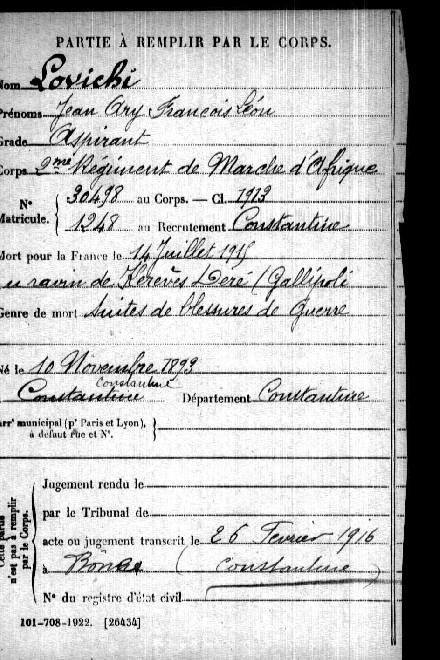 PARTIE À REMPLIR PAR LE CORPS.
Nom Lovichi
Prénoms Jean Ary François Léon
Grade Aspirant
Corps 2me Régiment de Marche d'Afrique
N° Matricule. { 30498 au Corps. — Cl. 1913
1248 au Recrutement Constantine
Mort pour la France le 14 Juillet 1915
au ravin de Kérévès Déré (Gallipoli
Genre de mort Suites de blessures de Guerre
Né le 10 Novembre 1893
Constantine
Constantine Département Constantine
arrt municipal (pr Paris et Lyon),
à défaut rue et N°.
Cette partie
n'est pas à remplir
par le Corps.
Jugement rendu le
par le Tribunal de
acte ou jugement transcrit le 26 Fevrier 1916
à (Constantine)
N° du registre d'état civil
101-708-1922. [26434]